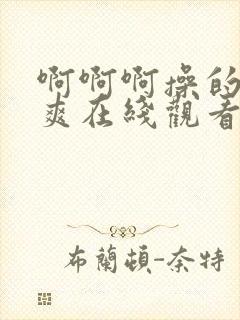 啊啊啊操的
爽在綫觀看
布蘭頓-奈特